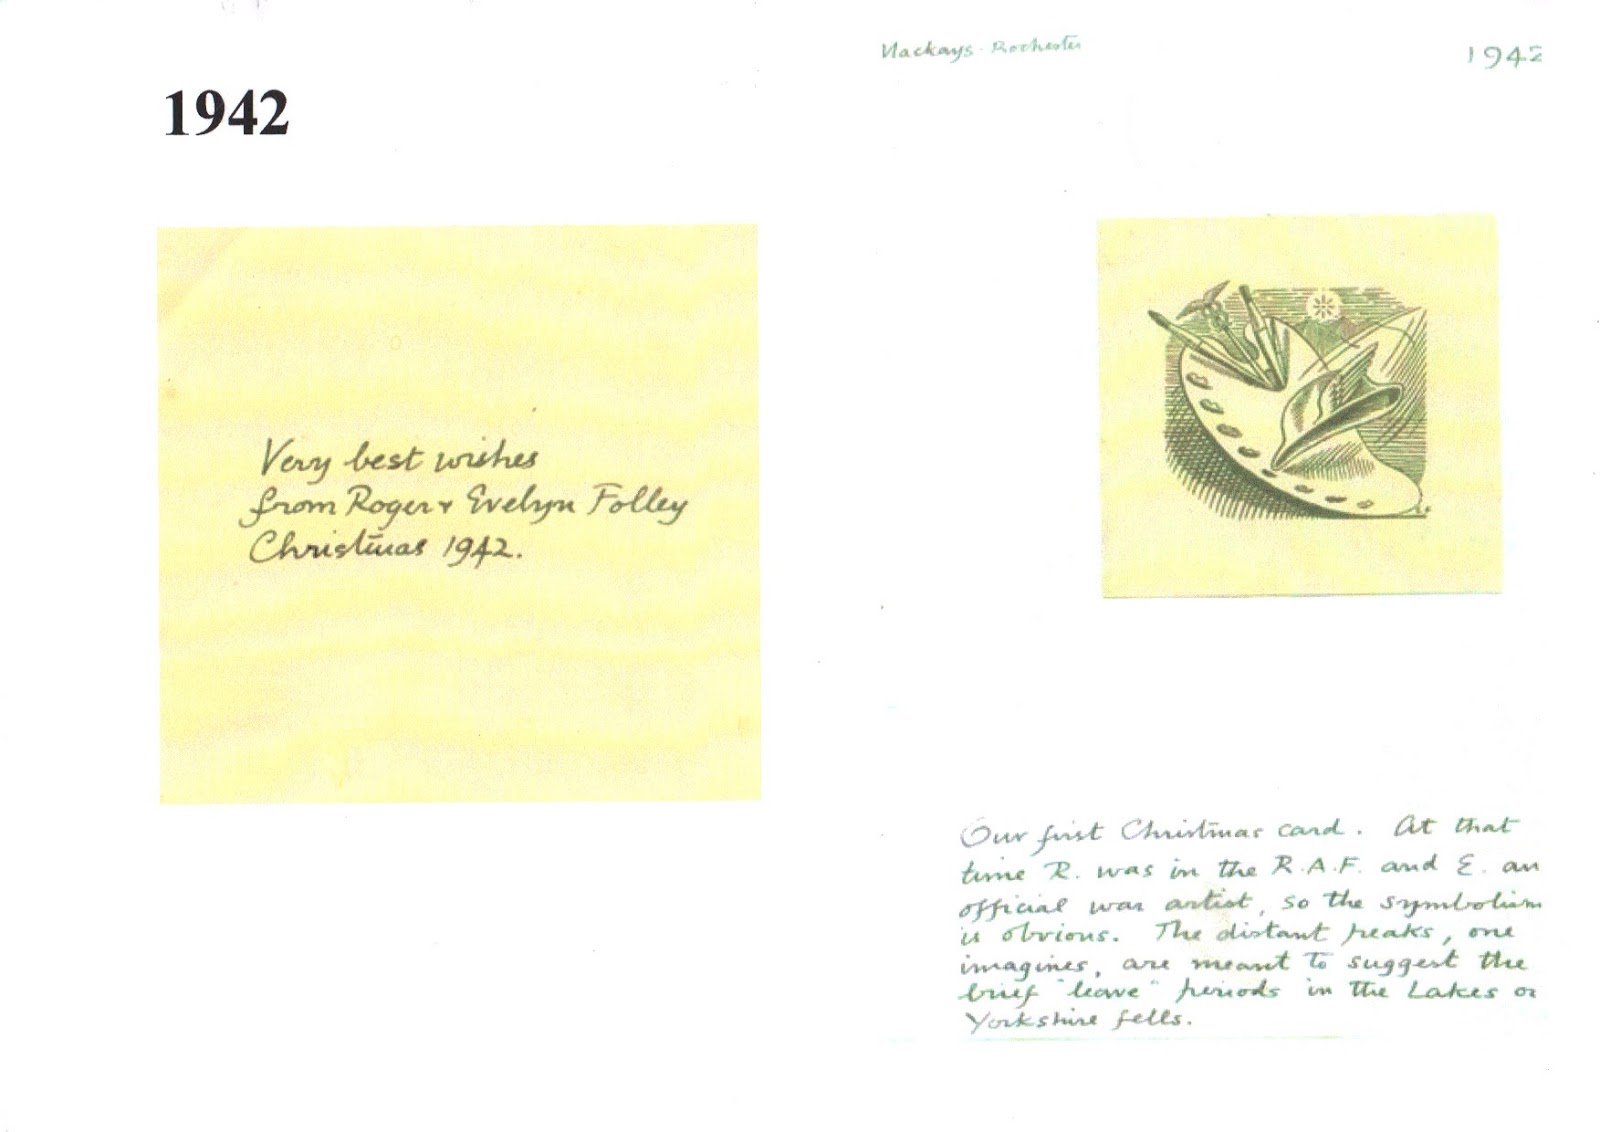 1942
Very best wishes
from Roger & Evelyn Folley
Christmas 1942.
Mackays - Rochester
1942
Our first Christmas card. At that
time R. was in the R.A.F. and E. an
official war artist, so the symbolism
is obvious. The distant peaks, one
imagines, are meant to suggest the
brief "leave" periods in the Lakes or
Yorkshire fells.